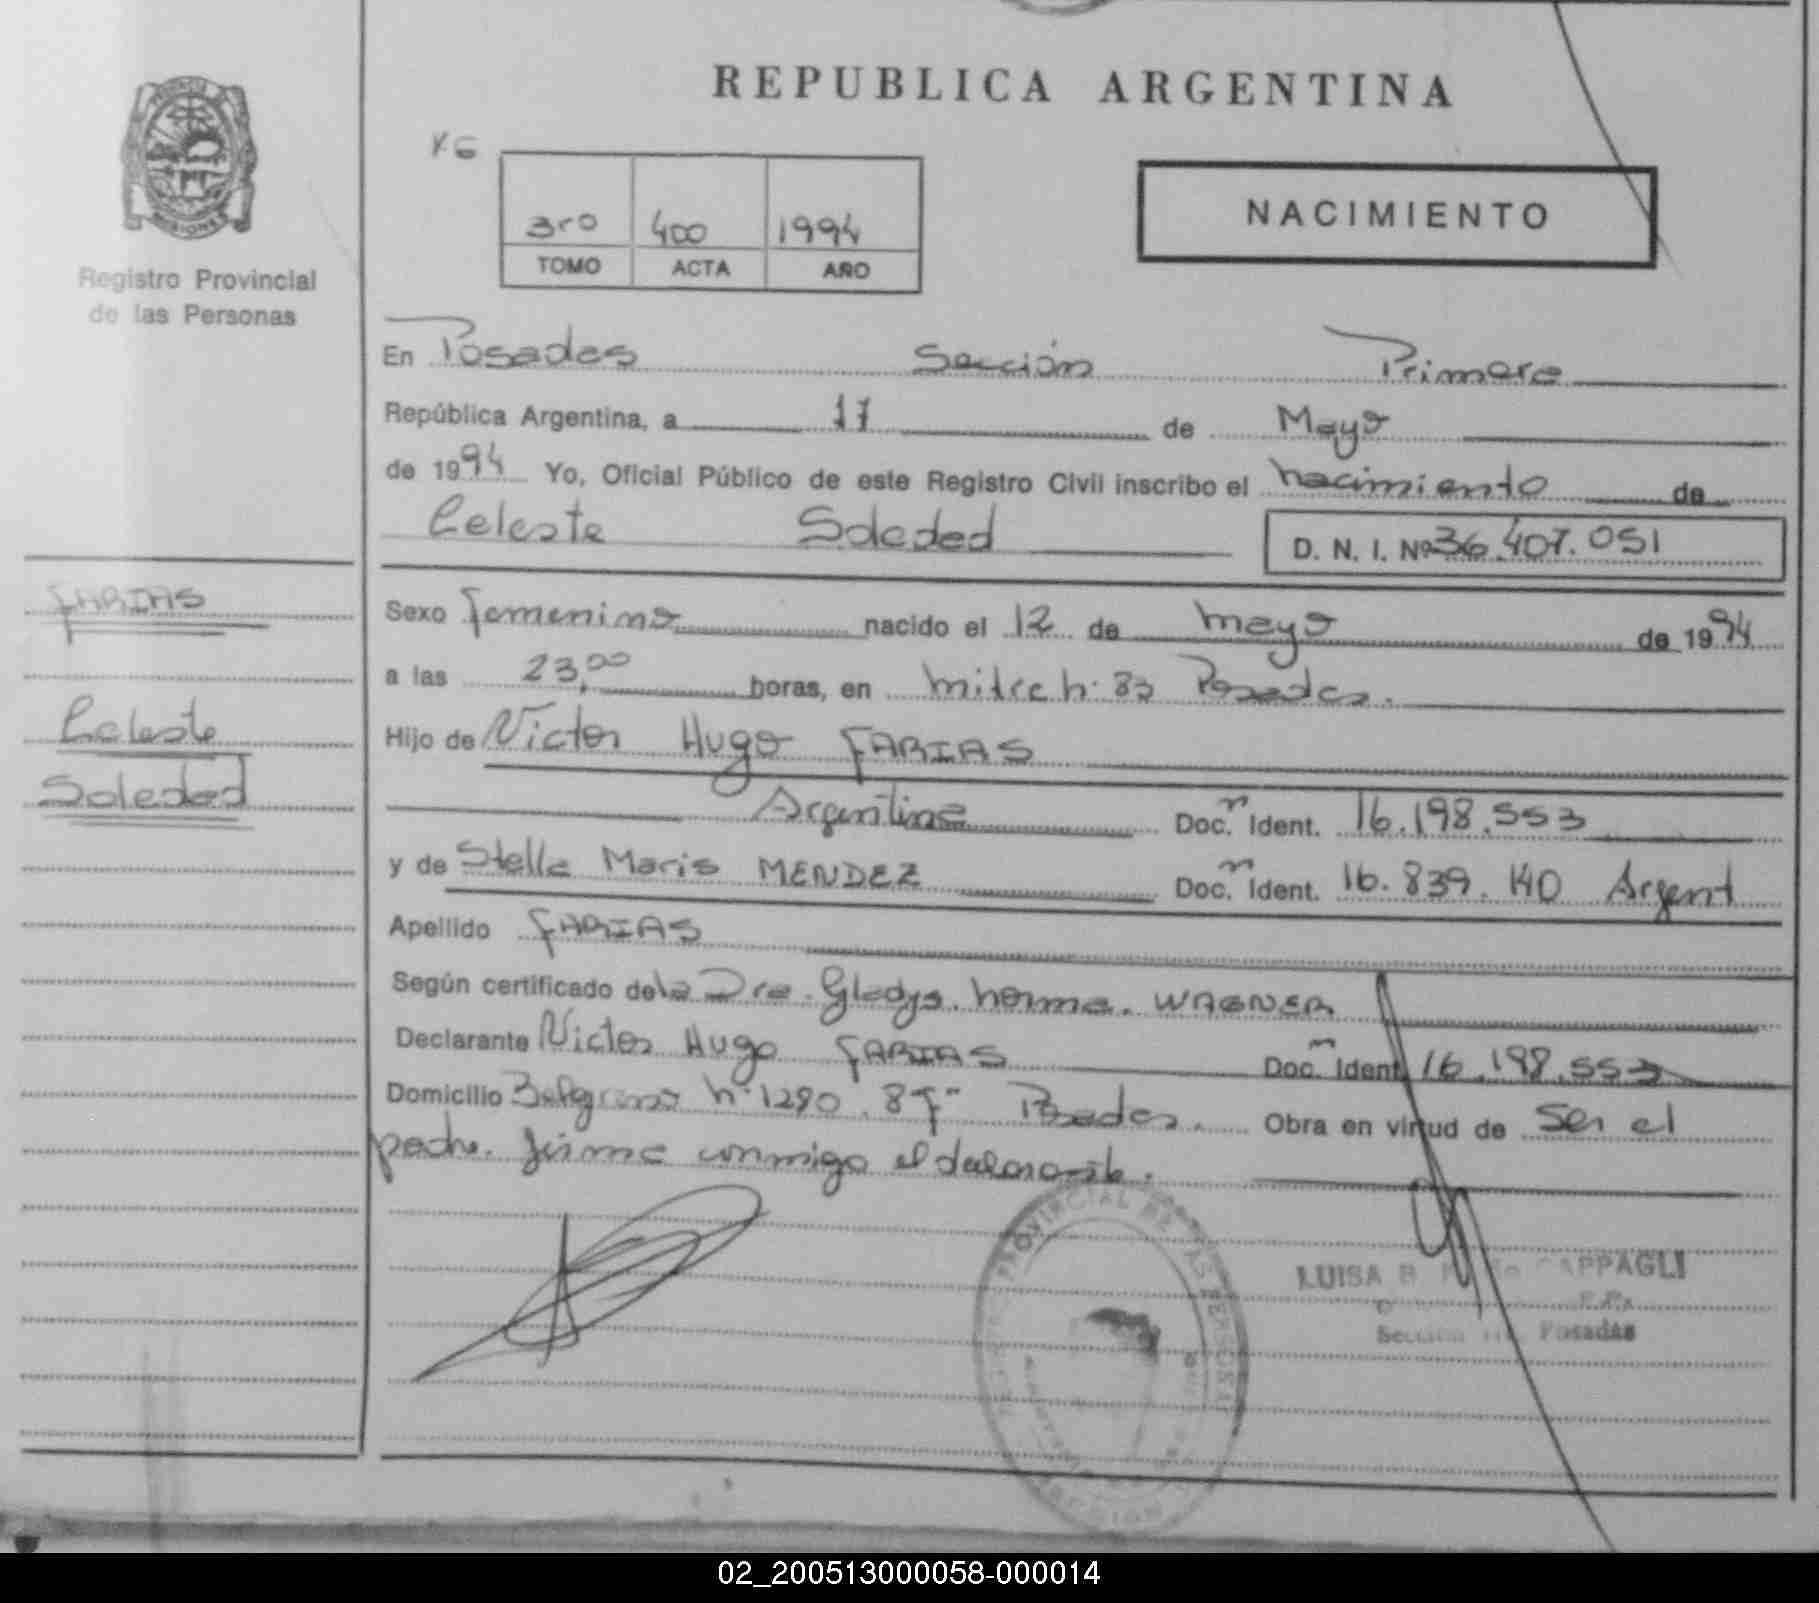 REPUBLICA ARGENTINA
PROVINCIA DE MISIONES
Registro Provincial
de las Personas
3ro 400 1994
TOMO ACTA AÑO
NACIMIENTO
En Posadas Sección Primera
República Argentina, a 17 de Mayo
de 1994 Yo, Oficial Público de este Registro Civil inscribo el nacimiento de
Celeste Soledad D. N. I. Nº 36.407.051
FARIAS
Celeste
Soledad
Sexo femenino nacido el 12 de mayo de 1994
a las 23,00 horas, en mitre nº 83 Posadas.
Hijo de Victor Hugo FARIAS
Argentina Doc. n Ident. 16.198.553
y de Stella Maris MENDEZ Doc. n Ident. 16.839.140 Argent
Apellido FARIAS
Según certificado de la Dra. Gladys. norma. WAGNER
Declarante Victor Hugo FARIAS Doc. n Ident. 16.198.553
Domicilio Belgrano nº 1290. Posadas. Obra en virtud de Ser el
padre. firma conmigo el declarante.
PROVINCIAL DE LAS PERSONAS
LUISA B. CAPPAGLI
Sección Posadas
02_200513000058-000014